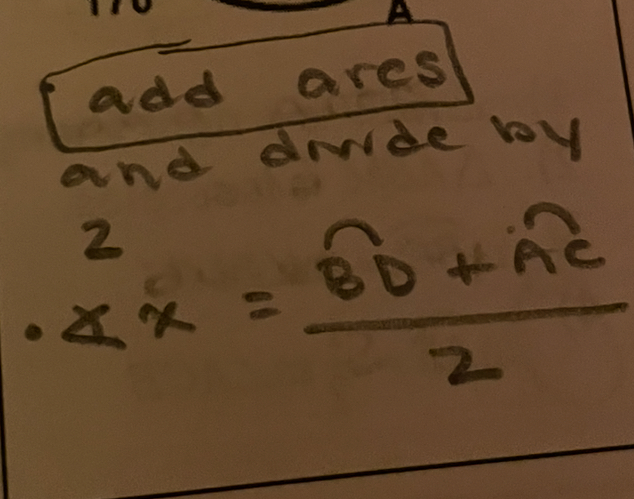 A
add arcs
and divide by
2
• ∡ x = (B͡D + A͡C) / 2